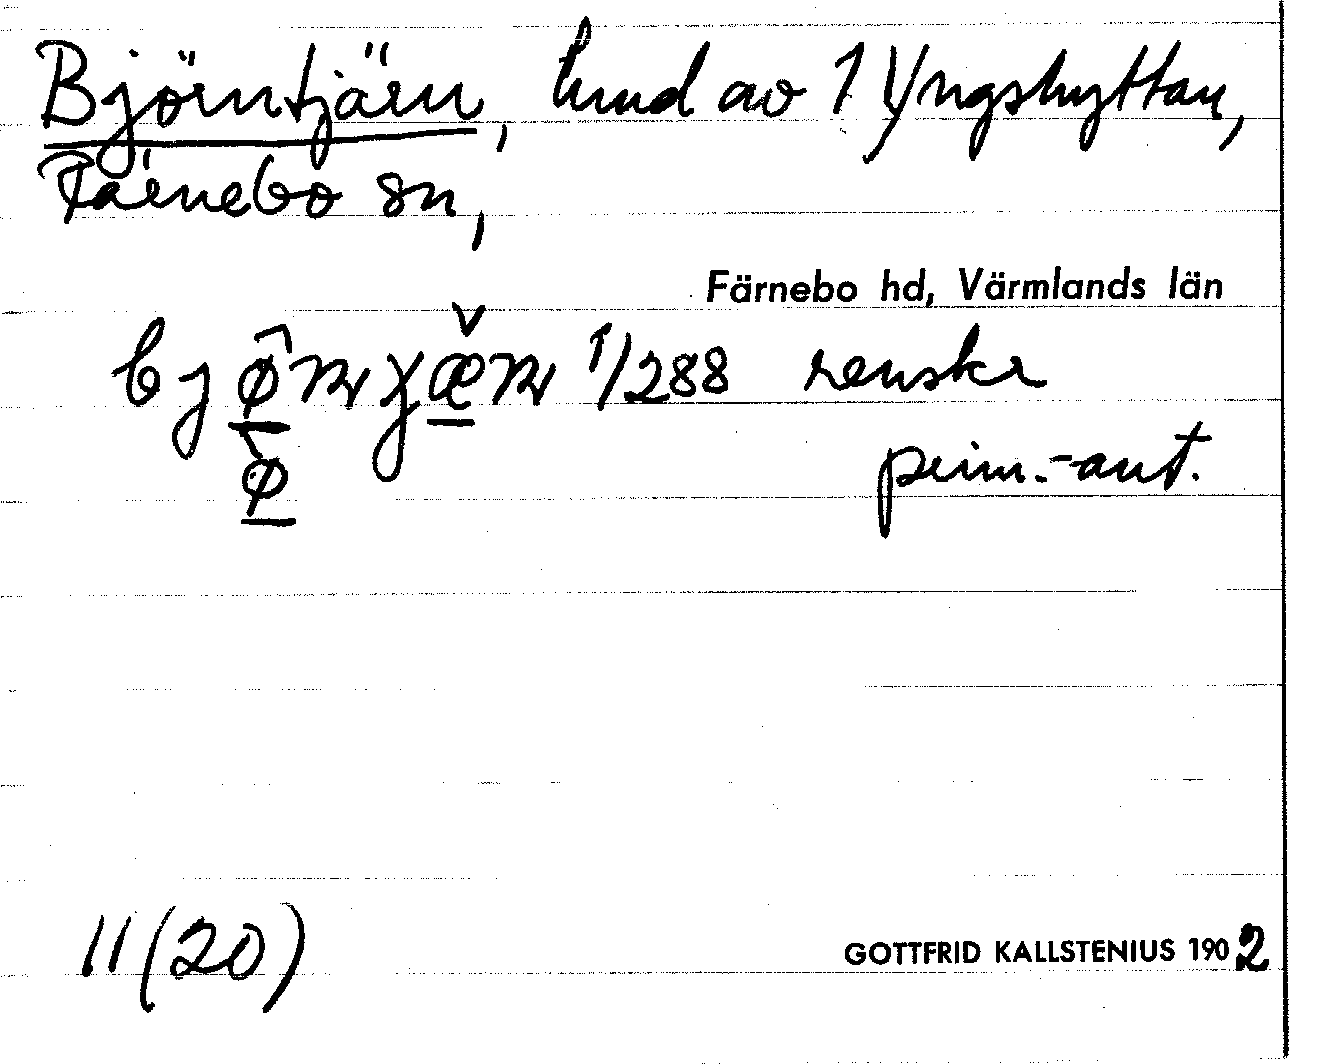 Björntjärn, hmd av 1 Yngshyttan,
Färnebo sn,
Färnebo hd, Värmlands län
1/288 renskr
prim.-ant.
11(20)
GOTTFRID KALLSTENIUS 1902